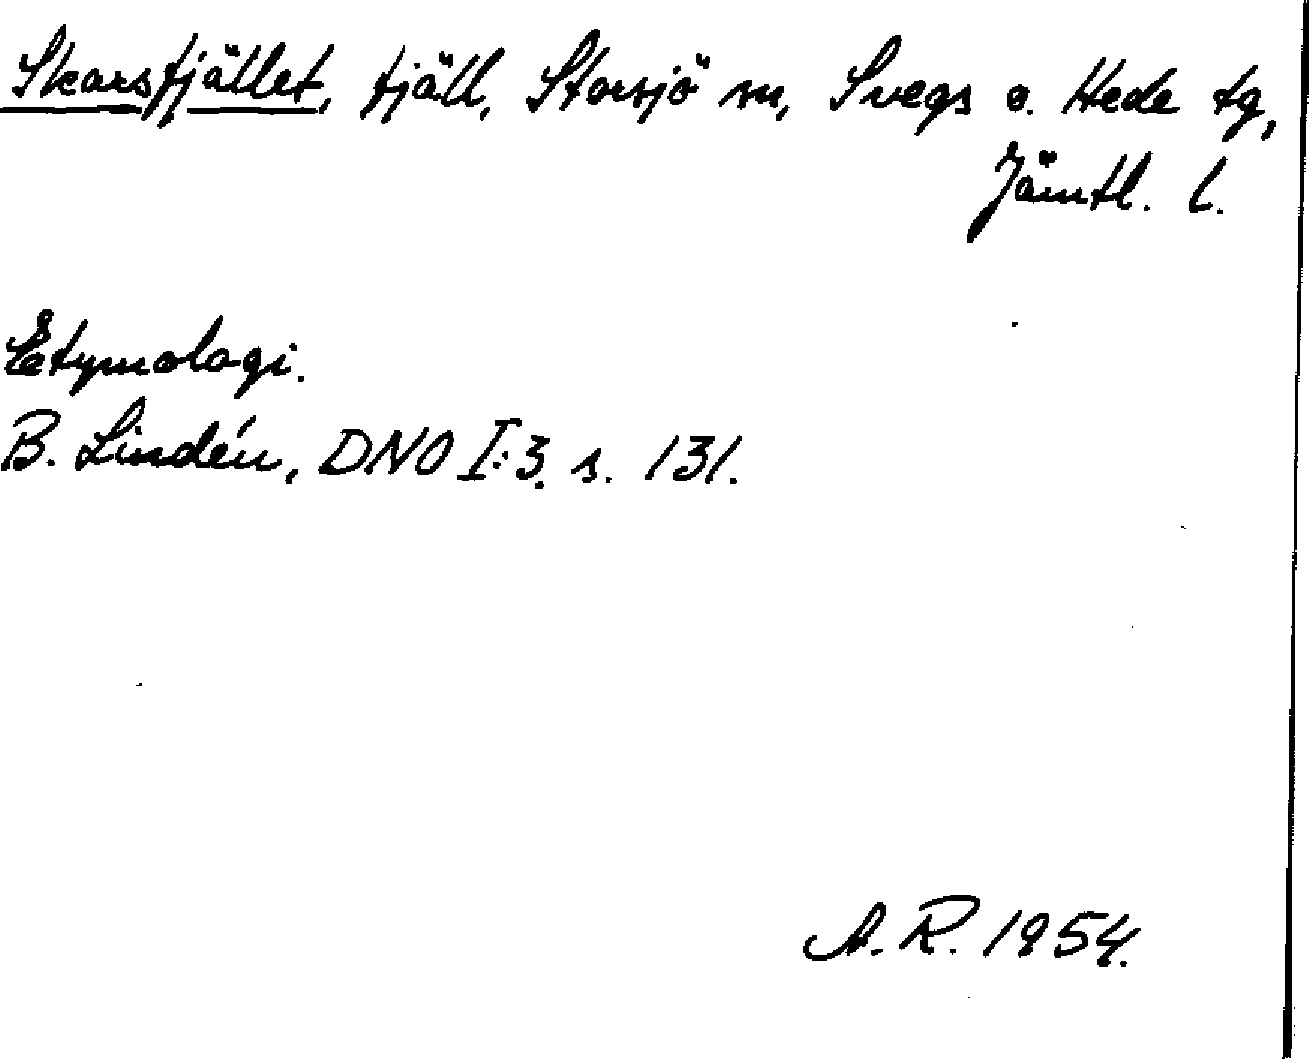 Skarsfjället, fjäll, Storsjö sn, Svegs o. Hede tg,
Jämtl. l.
Etymologi.
B. Lindén, DNO I:3. s. 131.
A. R. 1954.